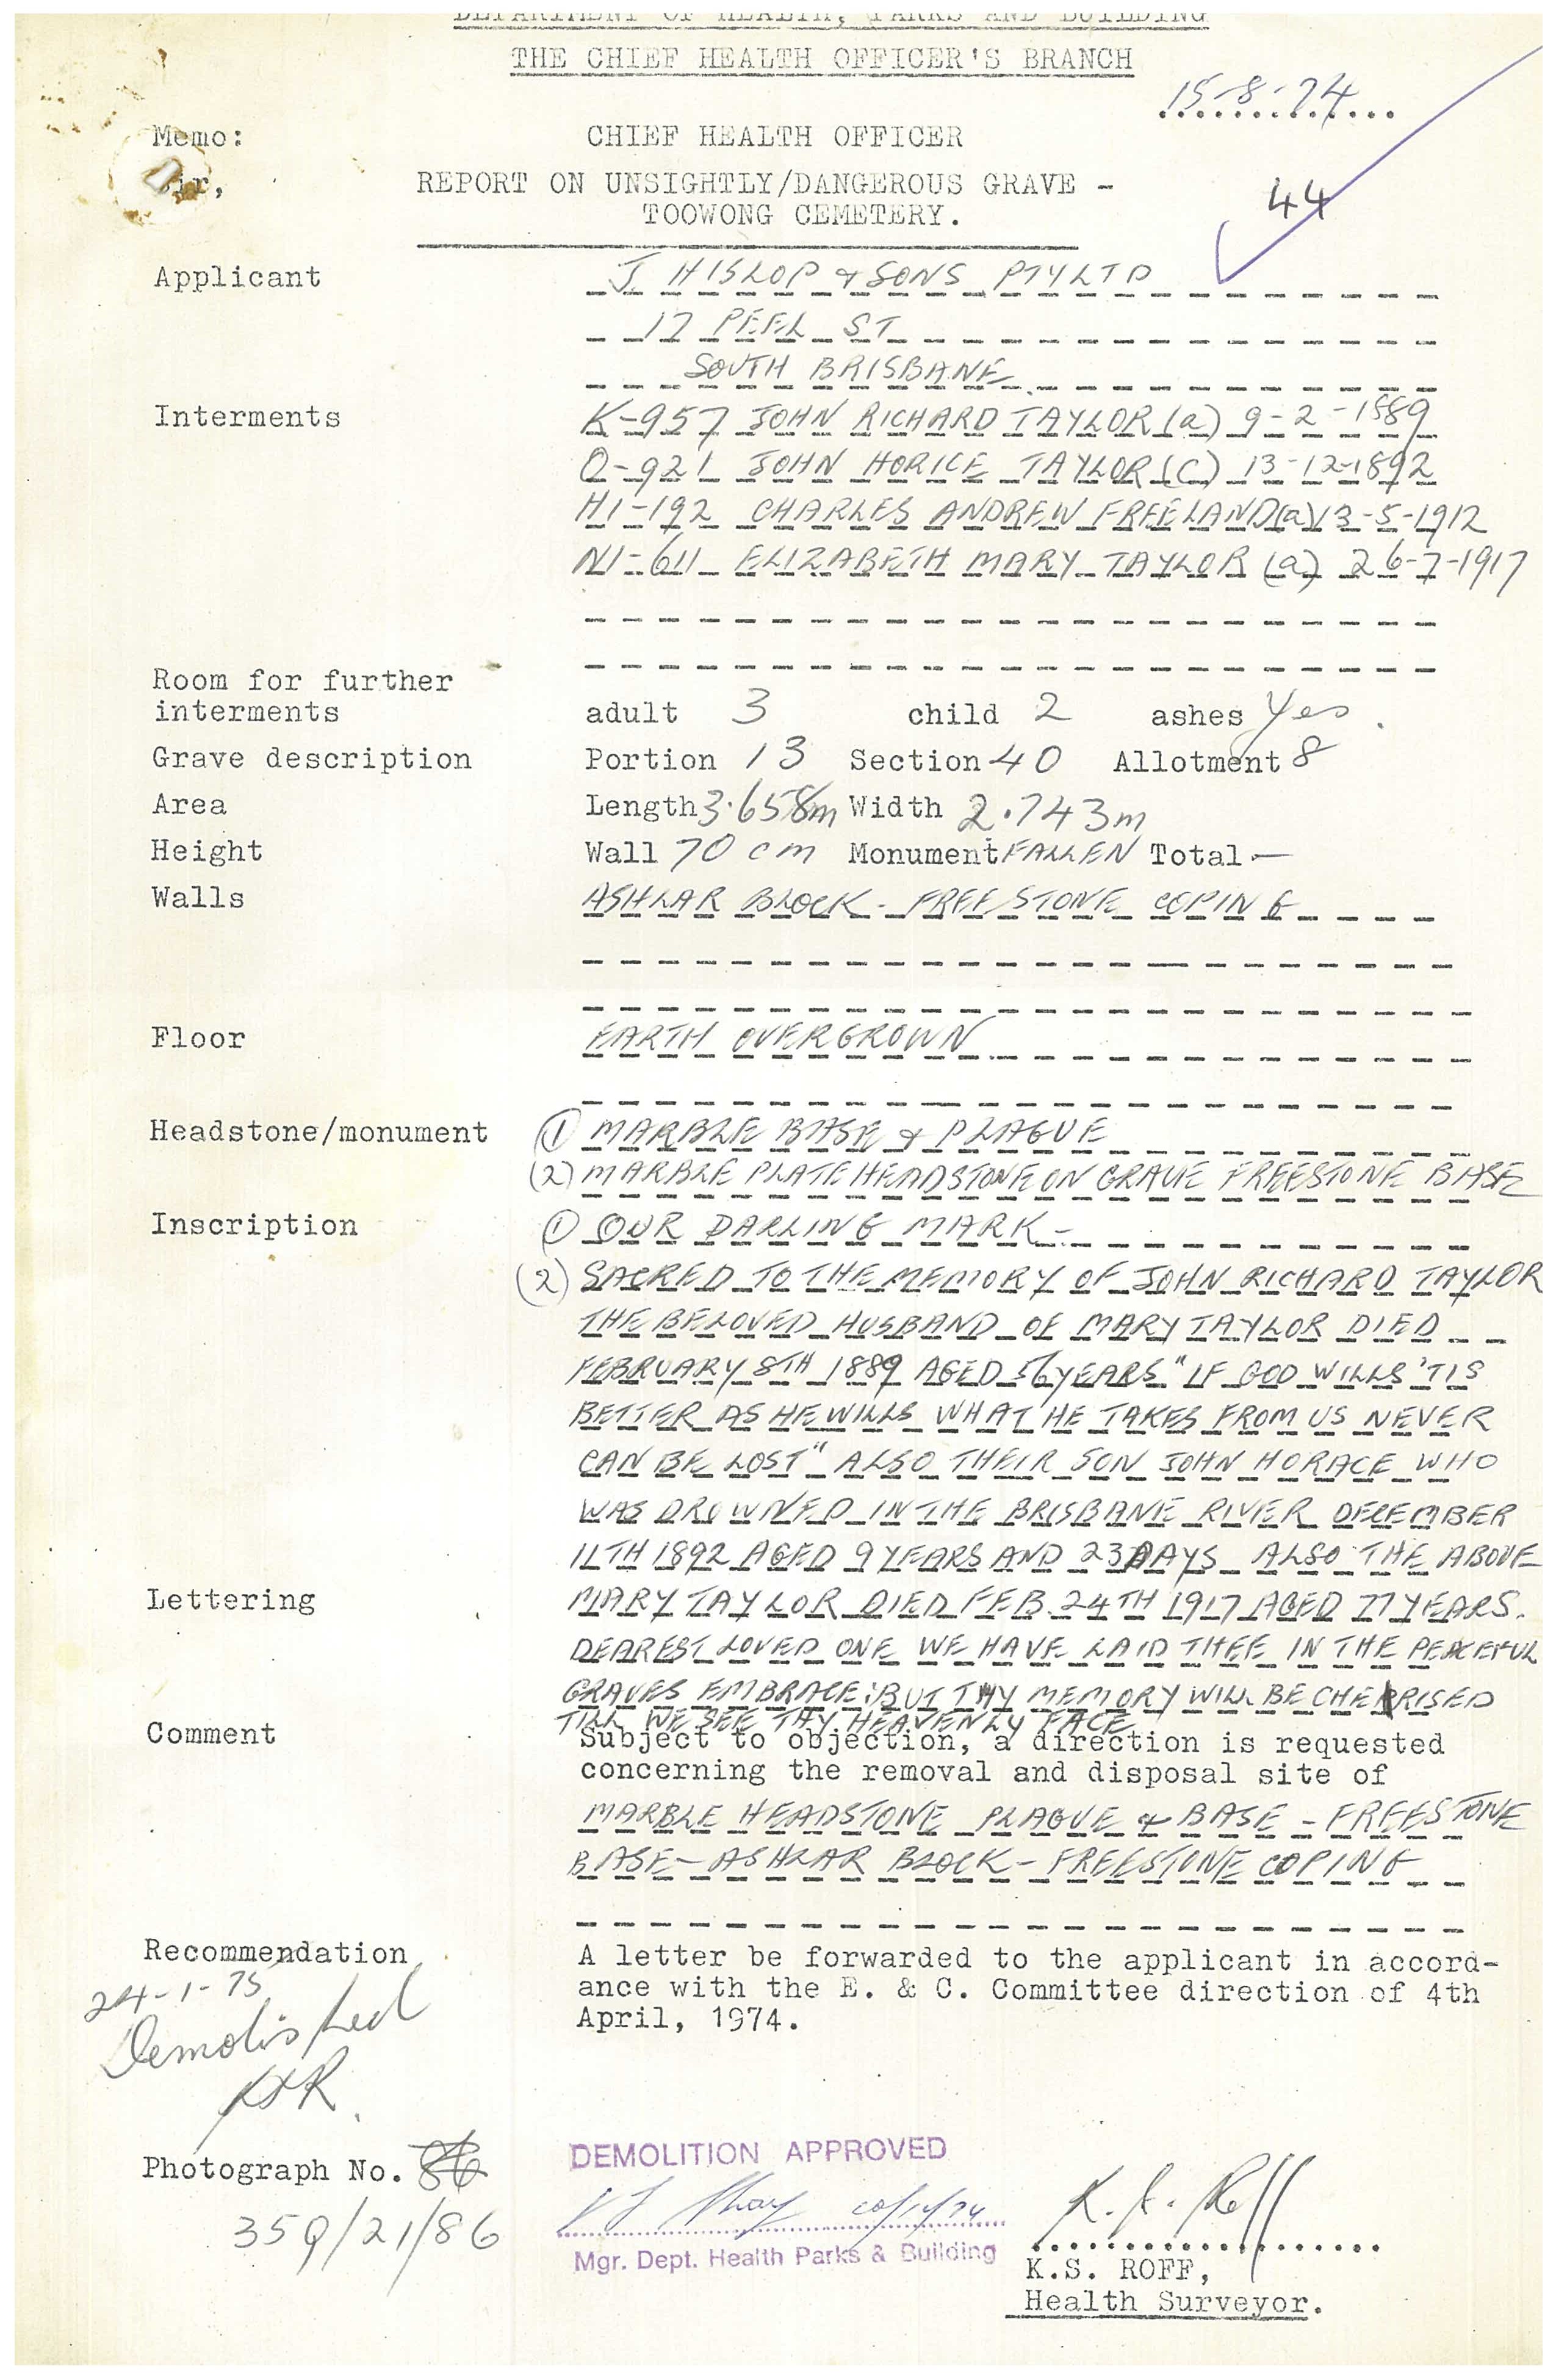 DEPARTMENT OF HEALTH, PARKS AND BUILDING
THE CHIEF HEALTH OFFICER'S BRANCH
15-8-74
Memo: CHIEF HEALTH OFFICER
Sir, REPORT ON UNSIGHTLY/DANGEROUS GRAVE -
TOOWONG CEMETERY.
44
Applicant J. HISLOP & SONS PTY LTD
17 PEEL ST
SOUTH BRISBANE
Interments K-957 JOHN RICHARD TAYLOR (a) 9-2-1889
O-921 JOHN HORICE TAYLOR (C) 13-12-1892
H1-192 CHARLES ANDREW FREELAND (a) 3-5-1912
N1-611 ELIZABETH MARY TAYLOR (a) 26-7-1917
Room for further
interments adult 3 child 2 ashes Yes.
Grave description Portion 13 Section 40 Allotment 8
Area Length 3.658m Width 2.743m
Height Wall 70 cm Monument FALLEN Total —
Walls ASHLAR BLOCK - FREESTONE COPING
Floor EARTH OVERGROWN
Headstone/monument (1) MARBLE BASE & PLAGUE
(2) MARBLE PLATE HEADSTONE ON GRAVE FREESTONE BASE
Inscription (1) OUR DARLING MARK -
(2) SACRED TO THE MEMORY OF JOHN RICHARD TAYLOR
THE BELOVED HUSBAND OF MARY TAYLOR DIED
FEBRUARY 8TH 1889 AGED 56 YEARS "IF GOD WILLS 'TIS
BETTER AS HE WILLS WHAT HE TAKES FROM US NEVER
CAN BE LOST" ALSO THEIR SON JOHN HORACE WHO
WAS DROWNED IN THE BRISBANE RIVER DECEMBER
11TH 1892 AGED 9 YEARS AND 23 DAYS ALSO THE ABOVE
Lettering MARY TAYLOR DIED FEB. 24TH 1917 AGED 77 YEARS.
DEAREST LOVED ONE WE HAVE LAID THEE IN THE PEACEFUL
GRAVES EMBRACE: BUT THY MEMORY WILL BE CHERRISED
TILL WE SEE THY HEAVENLY FACE
Comment Subject to objection, a direction is requested
concerning the removal and disposal site of
MARBLE HEADSTONE PLAGUE & BASE - FREESTONE
BASE - ASHLAR BLOCK - FREESTONE COPING
Recommendation A letter be forwarded to the applicant in accord-
ance with the E. & C. Committee direction of 4th
April, 1974.
24-1-75
Demolished
Photograph No. 86
35Q/21/86
DEMOLITION APPROVED
Mgr. Dept. Health Parks & Building
K.S. Roff
K.S. ROFF,
Health Surveyor.